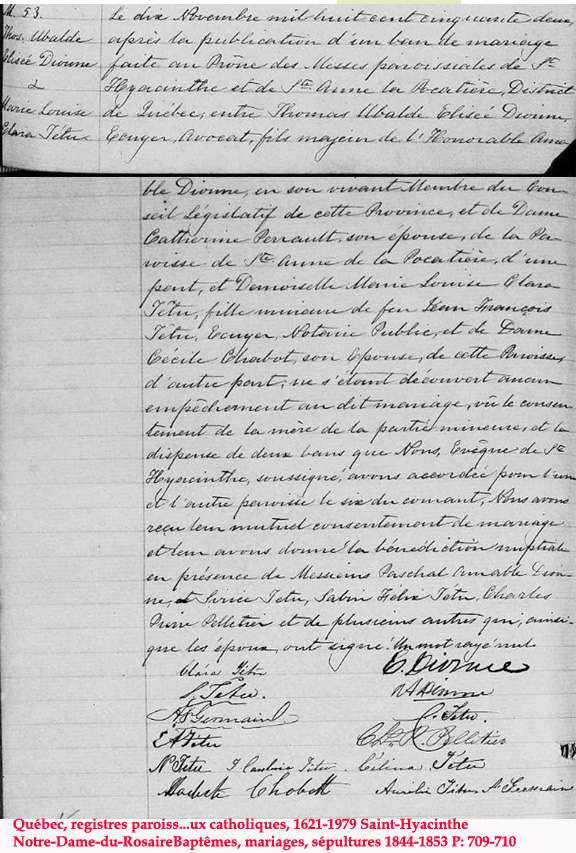 M. 53.
Thos. Ubalde
Elisée Dionne
&
Marie Louise
Clara Tétu
Le dix Novembre mil huit cent cinquante deux,
après la publication d'un ban de mariage
faite au Prone des Messes paroissiales de St
Hyacinthe et de Ste Anne la Pocatière, District
de Québec, entre Thomas Ubalde Elisée Dionne,
Ecuyer, Avocat, fils majeur de l'Honorable Ama
ble Dionne, en son vivant Membre du Con
seil Législatif de cette Province, et de Dame
Catherine Perrault, son épouse, de la Pa
roisse de Ste Anne de la Pocatière, d'une
part, et Demoiselle Marie Louise Clara
Tétu, fille mineure de feu Jean François
Tétu, Ecuyer, Notaire Public, et de Dame
Cécile Chabot, son Epouse, de cette Paroisse,
d'autre part; ne s'étant découvert aucun
empêchement au dit mariage, vû le consen
tement de la mère de la partie mineure, et la
dispense de deux bans que Nous, Evêque de St
Hyacinthe, soussigné, avons accordée pour l'une
et l'autre paroisse le six du courant, Nous avons
reçu leur mutuel consentement de mariage
et leur avons donné la bénédiction nuptiale
en présence de Messieurs Paschal Amable Dion
ne, et Sirice Tétu, Sabin Felix Tétu, Charles
Pelletier et de plusieurs autres qui, ainsi
que les époux, ont signé. Un mot rayé nul.
Clára Tétu
E. Dionne
Tetu.
Dionne
Germain
C. Tétu.
F A Tétu
Chs Pelletier
N. Tétu
Caroline Tétu
Célina Tétu
Chabot
Aurélie Tétu
Germain
Québec, registres paroiss...ux catholiques, 1621-1979 Saint-Hyacinthe
Notre-Dame-du-RosaireBaptêmes, mariages, sépultures 1844-1853 P: 709-710